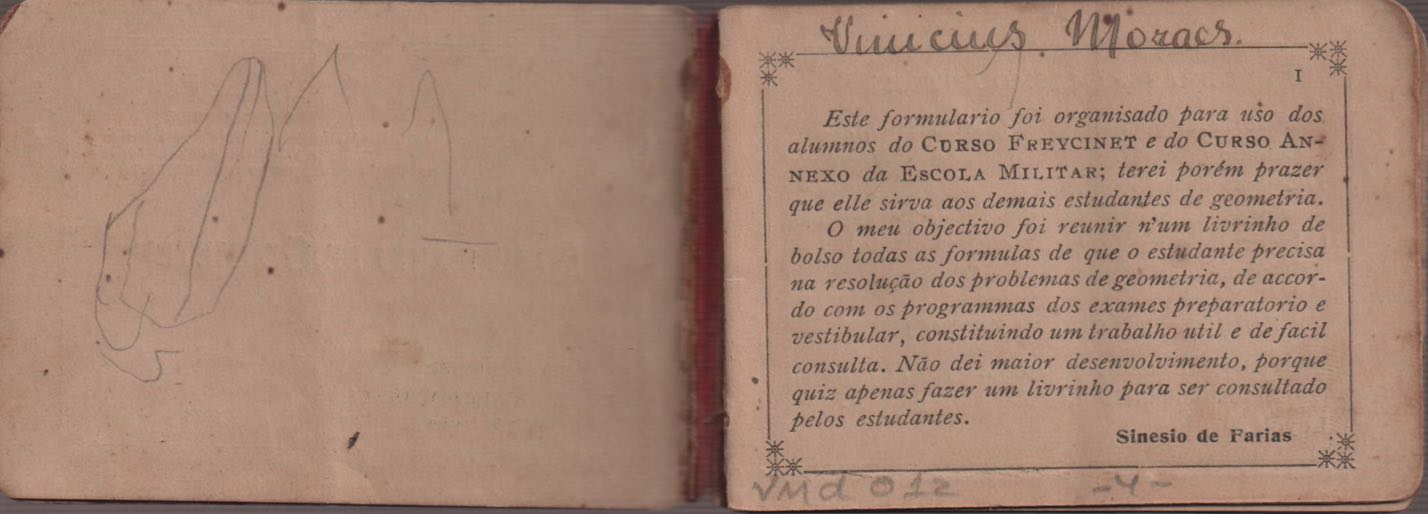 Vinicius Moraes.
I
Este formulario foi organisado para uso dos
alumnos do CURSO FREYCINET e do CURSO AN-
NEXO da ESCOLA MILITAR; terei porém prazer
que elle sirva aos demais estudantes de geometria.
O meu objectivo foi reunir n'um livrinho de
bolso todas as formulas de que o estudante precisa
na resolução dos problemas de geometria, de accor-
do com os programmas dos exames preparatorio e
vestibular, constituindo um trabalho util e de facil
consulta. Não dei maior desenvolvimento, porque
quiz apenas fazer um livrinho para ser consultado
pelos estudantes.
Sinesio de Farias
VMd 012 -4-